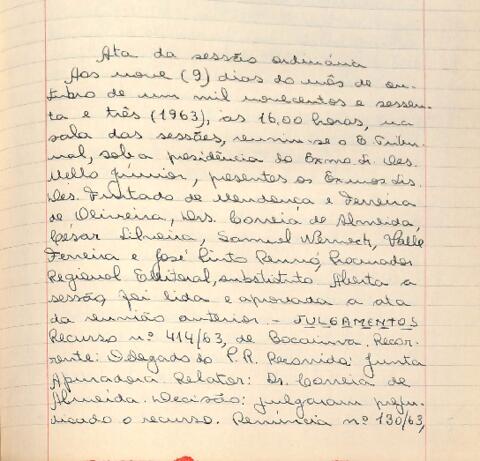 Ata da sessão ordinária
Aos nove (9) dias do mês de ou-
tubro de um mil novecentos e sessen-
ta e três (1963), às 16,00 horas, na
sala das sessões, reuniu-se o E. Tribu-
nal, sob a presidência do Exmo Sr. Des.
Mello Júnior, presentes os Exmos Srs.
Des. Furtado de Mendonça e Ferreira
de Oliveira, Drs. Correia de Almeida,
César Silveira, Samuel Werneck, Valle
Ferreira e José Pinto Renó, Procurador
Regional Eleitoral, substituto. Aberta a
sessão, foi lida e aprovada a ata
da reunião anterior. - JULGAMENTOS
Recurso nº 414/63, de Bocaiuva. Recor-
rente: O Delegado do P.R. Recorrida: Junta
Apuradora. Relator: Dr. Correia de
Almeida. Decisão: julgaram preju-
dicado o recurso. Renúncia nº 130/63,